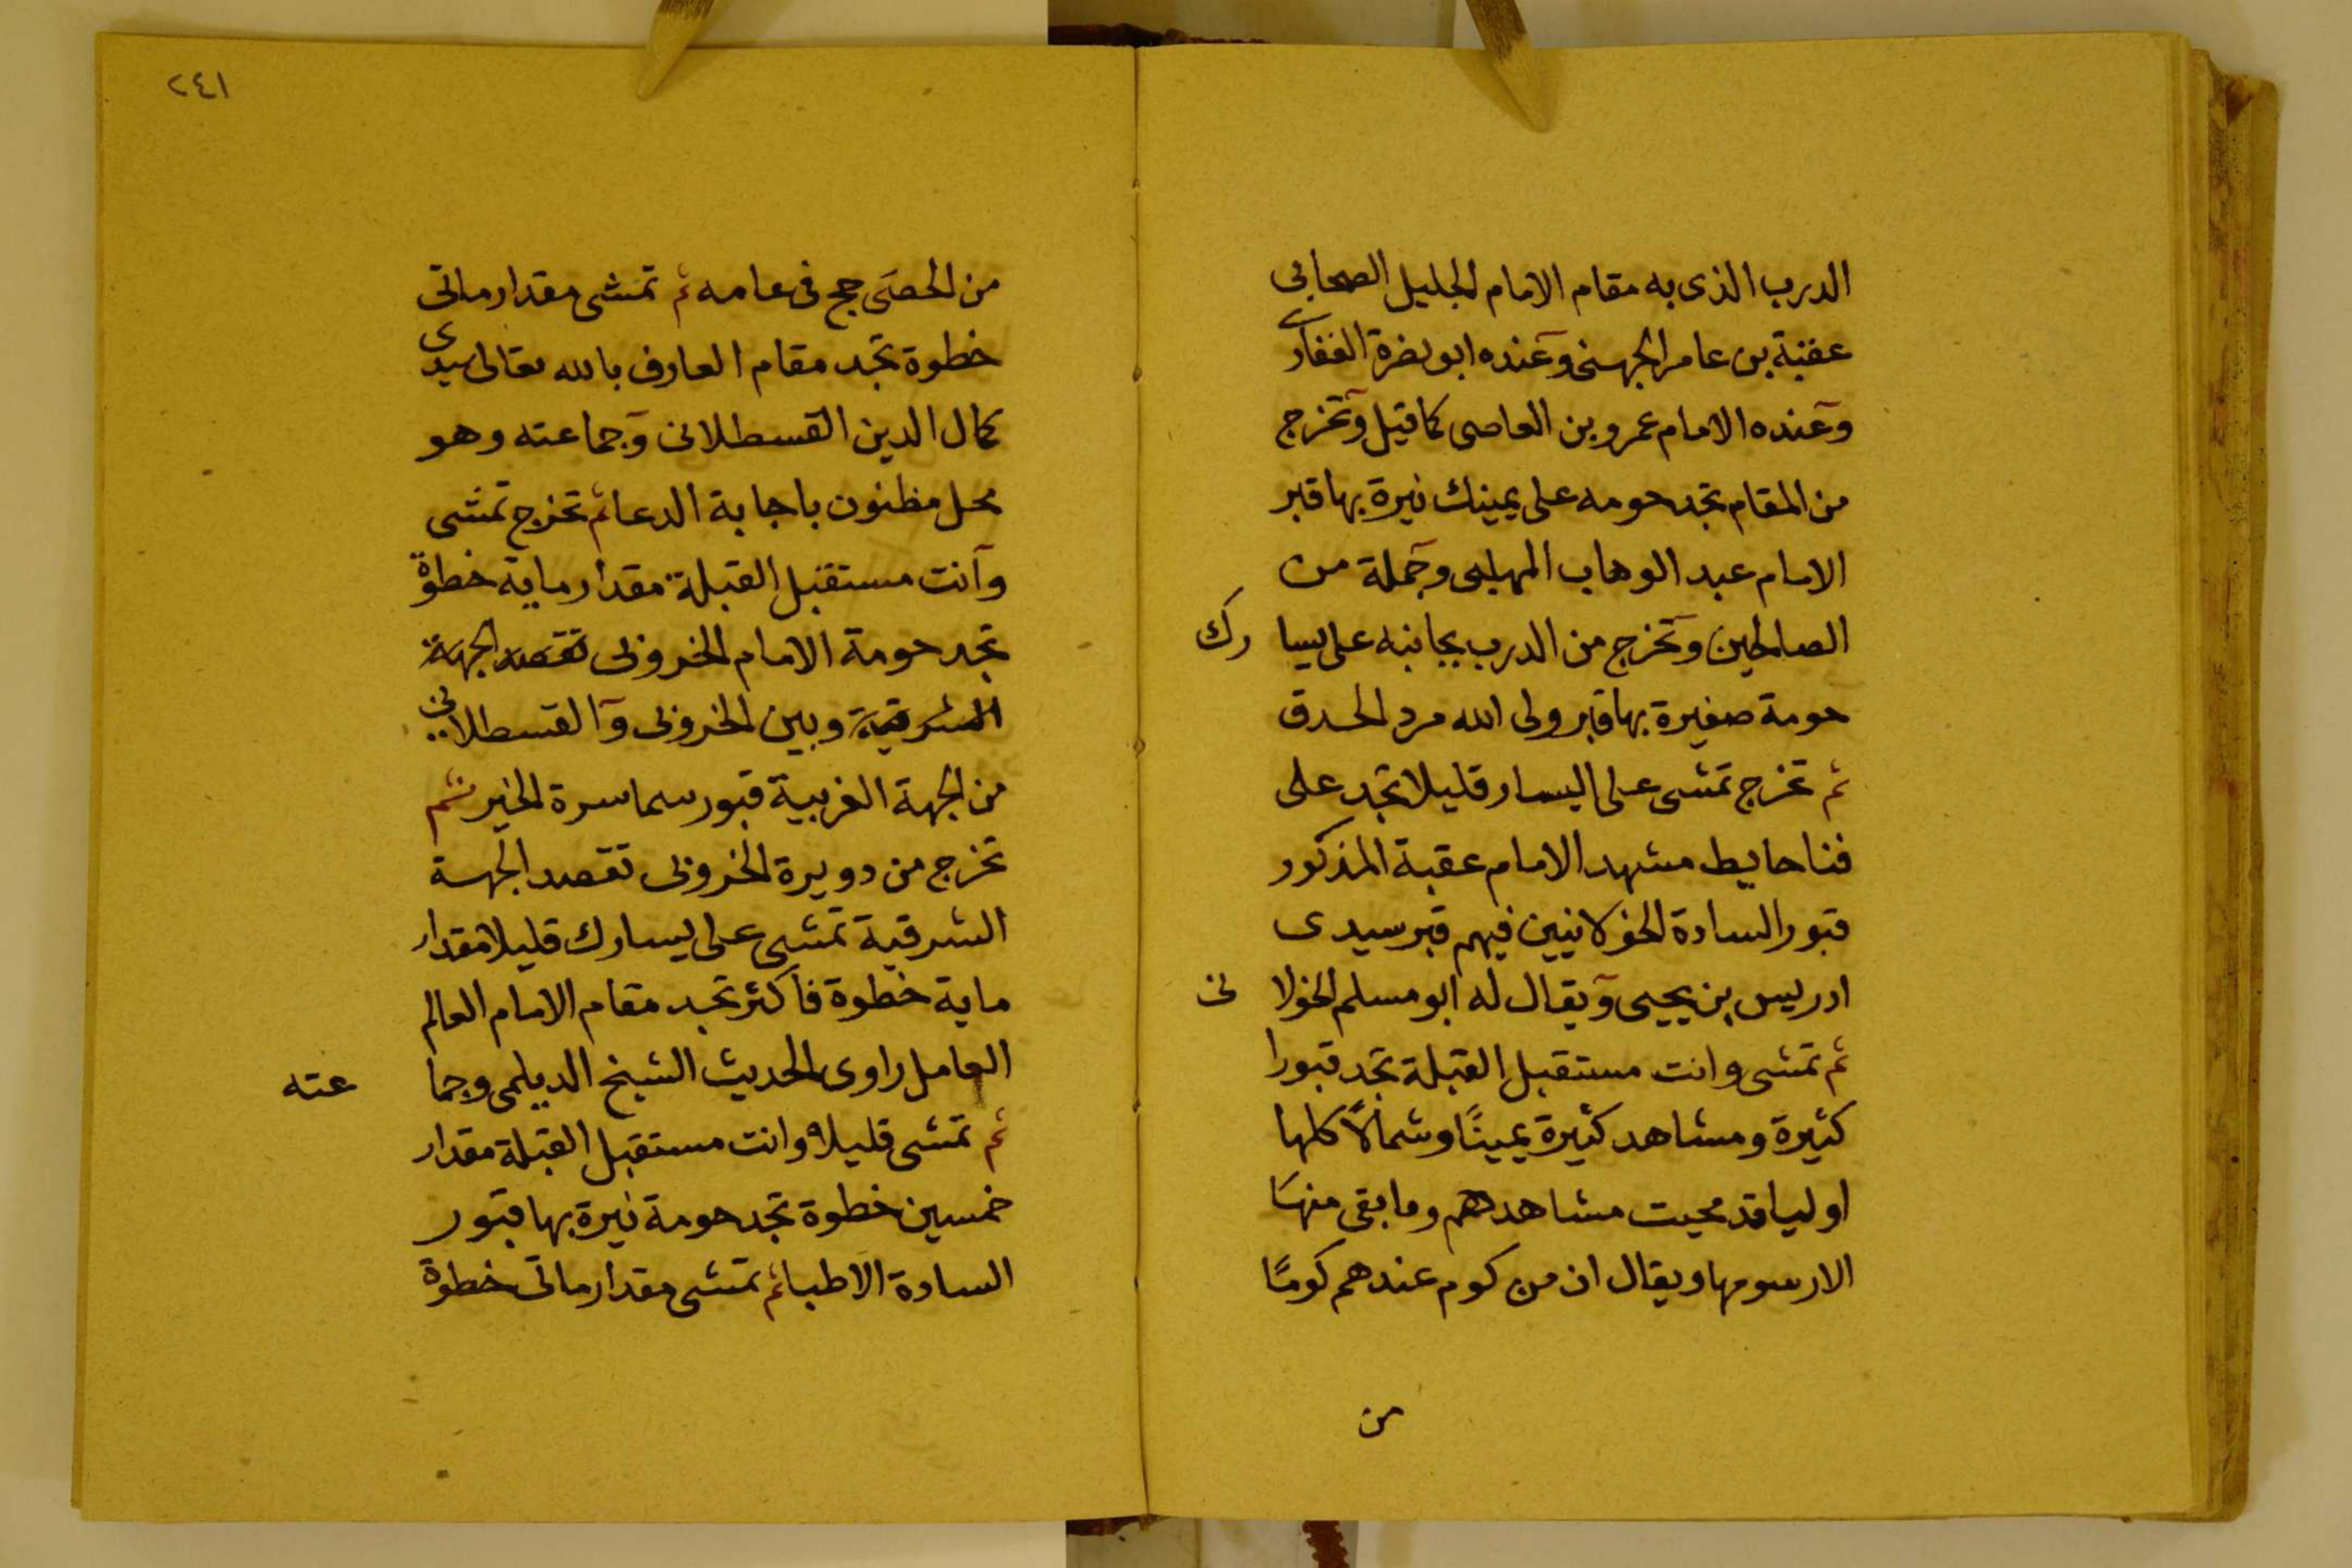 الدرب الذى به مقام الامام الجليل الصحابى
عقبة بن عامر الجهنى وعنده ابو بضرة الغفارى
وعنده الامام عمرو بن العاصى كما قيل وتخرج
من المقام تجد حومه على يمينك نيرة بها قبر
الامام عبد الوهاب المهلبى وجملة من
الصالحين وتخرج من الدرب بجانبه على يسارك
حومة صغيرة بها قبر ولى الله مرد الحدق
ثم تخرج تمشى على اليسار قليلا تجد على
فنا حايط مشهد الامام عقبة المذكور
قبور السادة الخولانيين فيهم قبر سيدى
ادريس بن يحيى ويقال له ابو مسلم الخولانى
ثم تمشى وانت مستقبل القبلة تجد قبورا
كثيرة ومشاهد كثيرة يمينًا وشمالاً كلها
اوليا قد محيت مشاهدهم وما بقى منها
الا رسومها ويقال ان من كوم عندهم كومًا
من
٢٤١
من الحصَى حج فى عامه ثم تمشى مقدار ماتى
خطوة تجد مقام العارف بالله تعالى سيدى
كمال الدين القسطلانى وجماعته وهو
محل مظنون باجابة الدعا ثم تخرج تمشى
وانت مستقبل القبلة مقدار ماية خطوة
تجد حومة الامام الخروفى تقصد الجهة
الشرقية وبين الخروفى والقسطلانى
من الجهة الغربية قبور سماسرة الخير ثم
تخرج من دويرة الخروفى تقصد الجهة
الشرقية تمشى على يسارك قليلا مقدار
ماية خطوة فاكثر تجد مقام الامام العالم
العامل راوى الحديث الشيخ الديلمى وجماعته
ثم تمشى قليلا وانت مستقبل القبلة مقدار
خمسين خطوة تجد حومة نيرة بها قبور
السادة الاطبا ثم تمشى مقدار ماتى خطوة